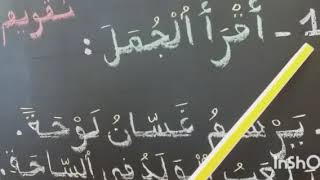 تقويم
1 - أَقْرَأُ ٱلْجُمَلَ :
يَرْسُمُ غَسَّانُ لَوْحَةً.
ٱلْوَلَدُ فِي ٱلسَّاحَةِ.
InShO